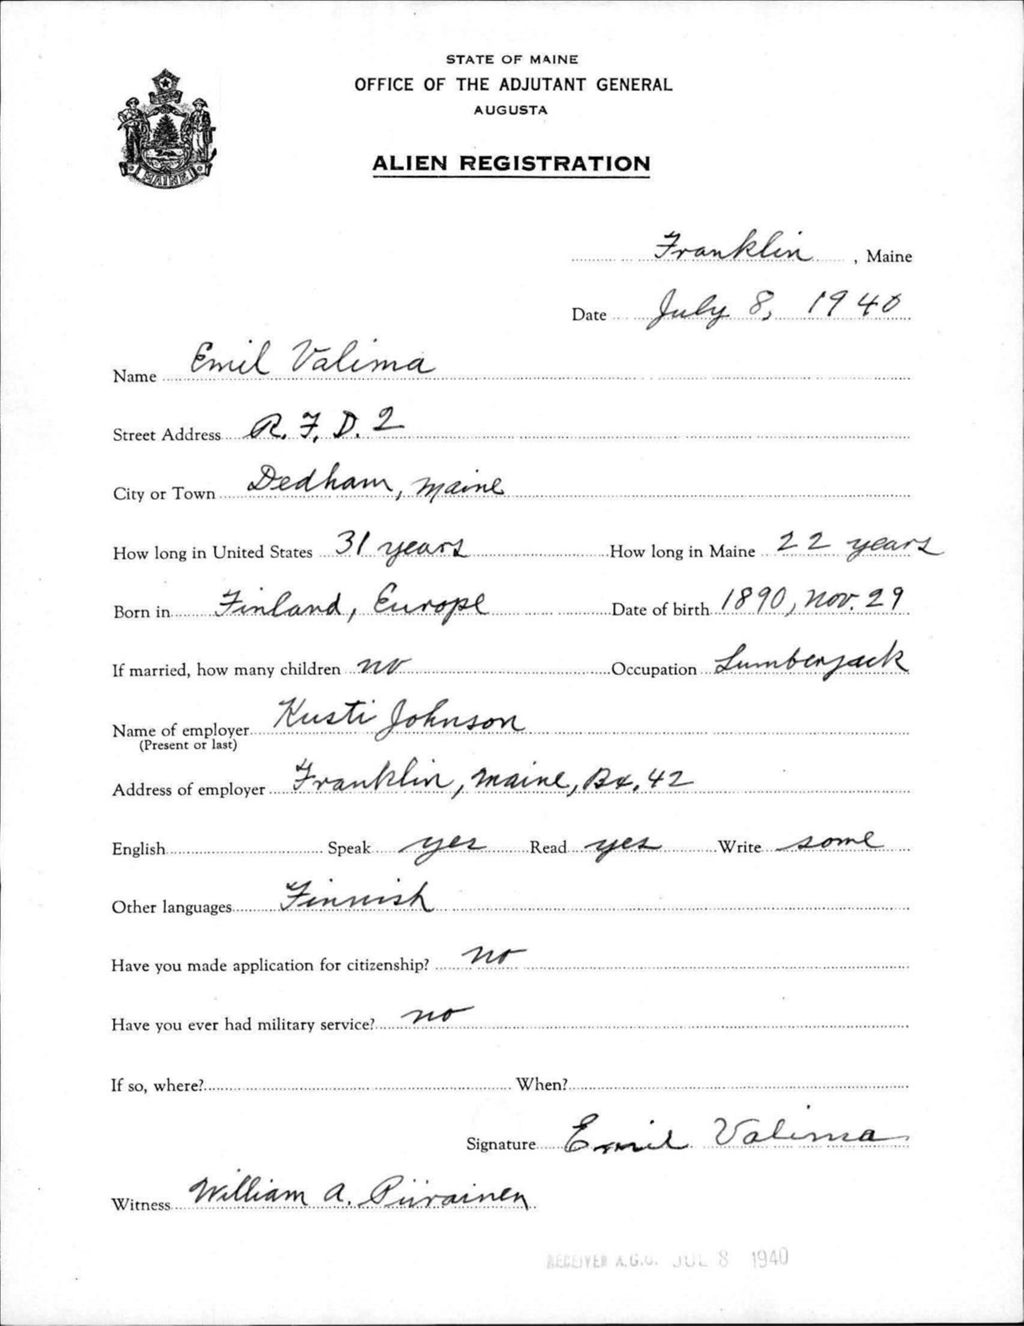 STATE OF MAINE
OFFICE OF THE ADJUTANT GENERAL
AUGUSTA
ALIEN REGISTRATION
MAINE
Franklin, Maine
Date July 8, 1940
Name Emil Valima
Street Address R. F. D. 2
City or Town Dedham, Maine
How long in United States 31 years How long in Maine 22 years
Born in Finland, Europe Date of birth 1890, Nov. 29
If married, how many children no Occupation Lumberjack
Name of employer Kusti Johnson
(Present or last)
Address of employer Franklin, Maine, Bx. 42
English Speak yes Read yes Write some
Other languages Finnish
Have you made application for citizenship? no
Have you ever had military service? no
If so, where? When?
Signature Emil Valima
Witness William A. Piirainen
RECEIVED A.G.O. JUL 8 1940